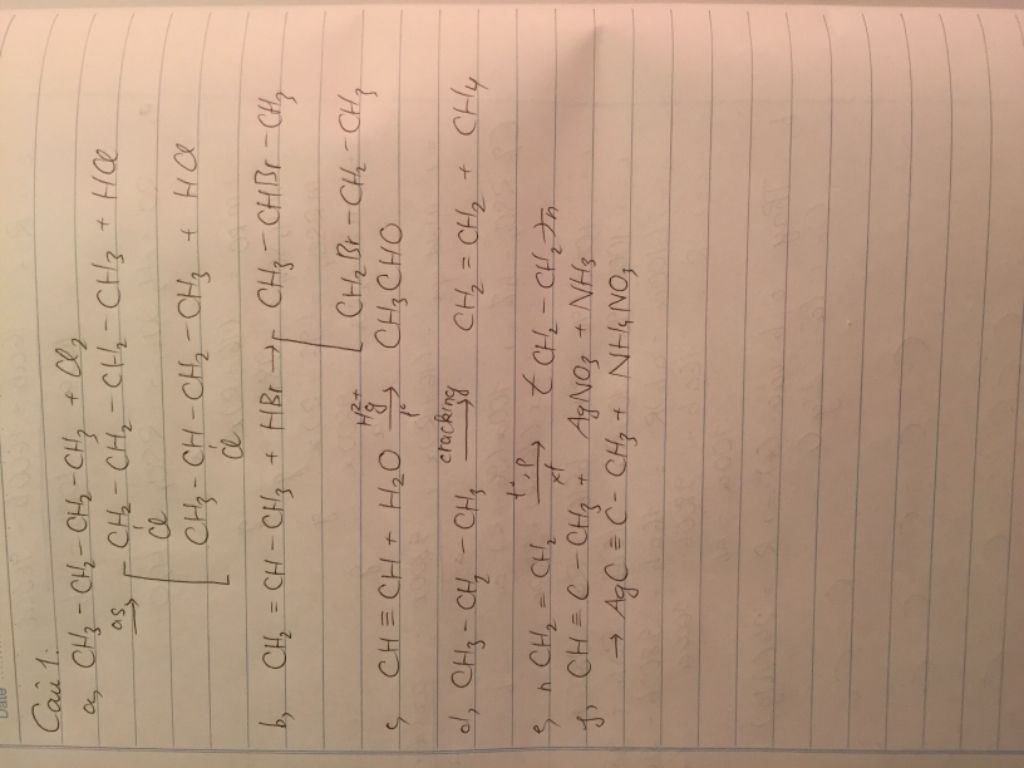 Date
Câu 1.
a, CH3 - CH2 - CH2 - CH3 + Cl2
as → [ CH2 - CH2 - CH2 - CH3 + HCl
Cl
CH3 - CH - CH2 - CH3 + HCl
Cl
b, CH2 = CH - CH3 + HBr → [ CH3 - CHBr - CH3
CH2Br - CH2 - CH3
c, CH ≡ CH + H2O Hg2+ → t° CH3CHO
d, CH3 - CH2 - CH3 cracking → CH2 = CH2 + CH4
e, n CH2 = CH2 t°, P → xt ( CH2 - CH2 )n
f, CH ≡ C - CH3 + AgNO3 + NH3
→ AgC ≡ C - CH3 + NH4NO3